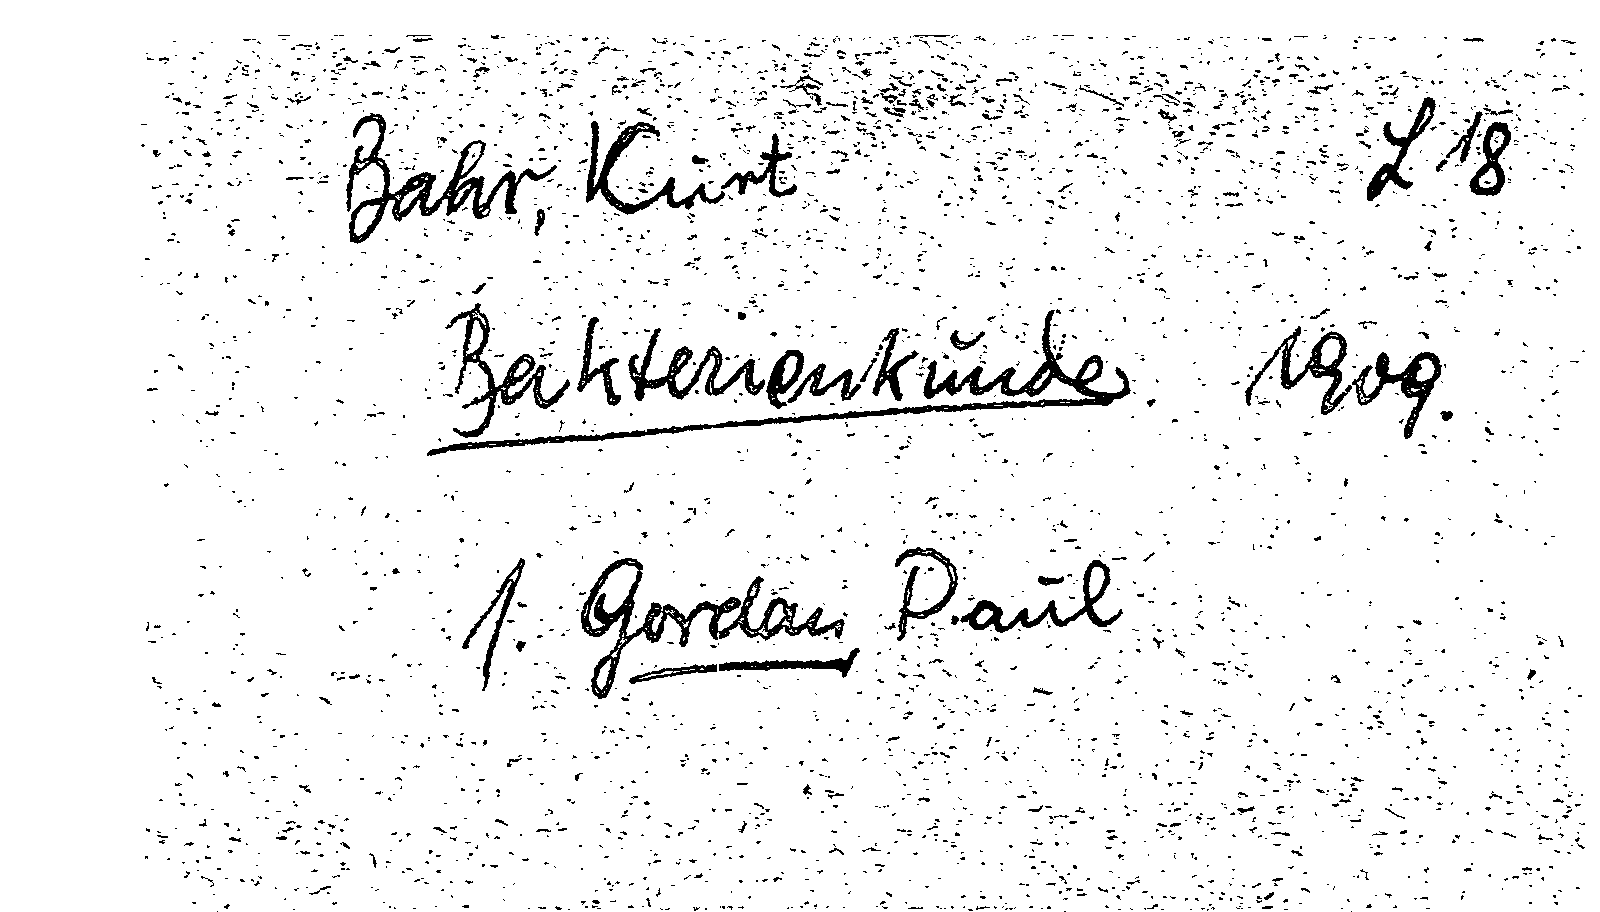 Bahr, Kurt L 18
Bakterienkunde. 1909.
1. Gordan Paul